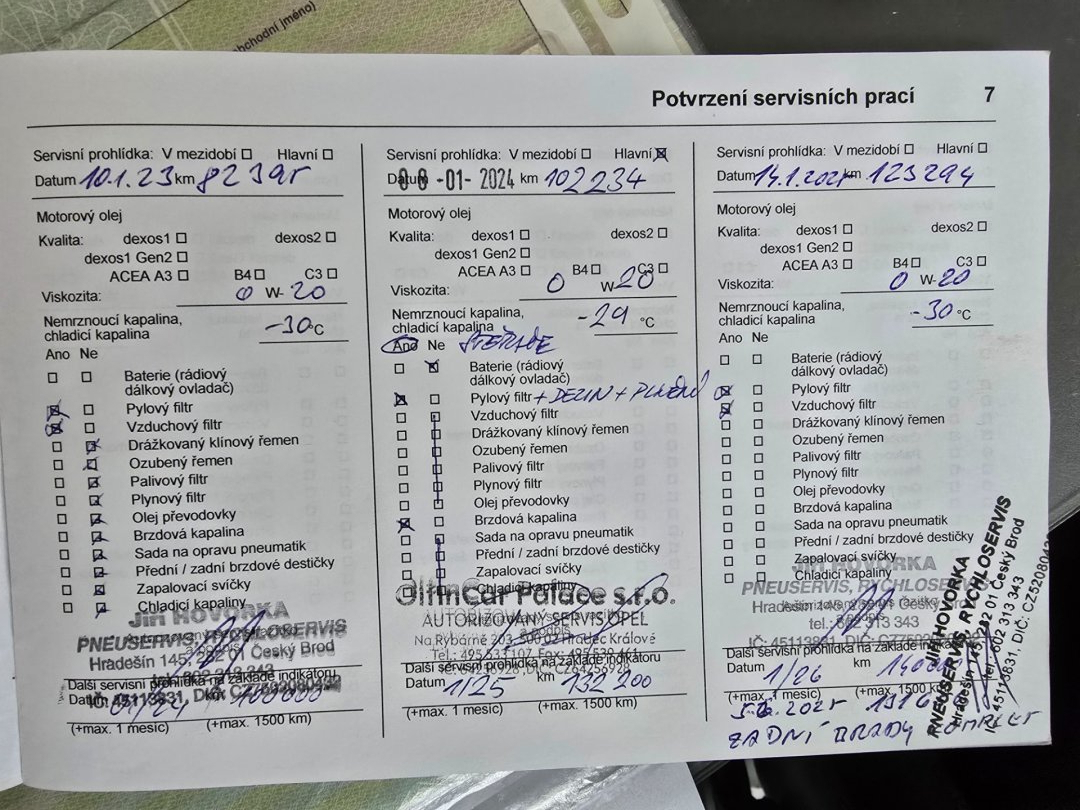 bchodní jméno)
Potvrzení servisních prací 7
Servisní prohlídka: V mezidobí Hlavní
Datum 10.1.23 km
Motorový olej
Kvalita: dexos1 dexos2
dexos1 Gen2
ACEA A3 B4 C3
Viskozita: 0 W- 20
Nemrznoucí kapalina,
chladicí kapalina -30 °C
Ano Ne
Baterie (rádiový
dálkový ovladač)
Pylový filtr
Vzduchový filtr
Drážkovaný klínový řemen
Ozubený řemen
Palivový filtr
Plynový filtr
Olej převodovky
Brzdová kapalina
Sada na opravu pneumatik
Přední / zadní brzdové destičky
Zapalovací svíčky
Chladicí kapaliny
Jiří HOVORKA
PNEUSERVIS, RYCHLOSERVIS
Hradešín 145, 282 01 Český Brod
Další servisní prohlídka na základě indikátoru
Datum 01/24 100000
(+max. 1 měsíc) (+max. 1500 km)
Servisní prohlídka: V mezidobí Hlavní
Datum 08 -01- 2024 km 102234
Motorový olej
Kvalita: dexos1 dexos2
dexos1 Gen2
ACEA A3 B4 C3
Viskozita: 0 W- 20
Nemrznoucí kapalina,
chladicí kapalina -29 °C
Ano Ne STĚRAČE
Baterie (rádiový
dálkový ovladač)
Pylový filtr + DEZIN + PLNĚNÍ
Vzduchový filtr
Drážkovaný klínový řemen
Ozubený řemen
Palivový filtr
Plynový filtr
Olej převodovky
Brzdová kapalina
Sada na opravu pneumatik
Přední / zadní brzdové destičky
Zapalovací svíčky
Chladicí kapaliny
Car Palace s.r.o.
AUTORIZOVANÝ SERVIS OPEL
Na Rybárně 203, 500 02 Hradec Králové
Tel.: 495 533 107
Další servisní prohlídka na základě indikátoru
Datum 1/25 km 132 200
(+max. 1 měsíc) (+max. 1500 km)
Servisní prohlídka: V mezidobí Hlavní
Datum 14.1.2025 km 123294
Motorový olej
Kvalita: dexos1 dexos2
dexos1 Gen2
ACEA A3 B4 C3
Viskozita: 0 W- 20
Nemrznoucí kapalina,
chladicí kapalina -30 °C
Ano Ne
Baterie (rádiový
dálkový ovladač)
Pylový filtr
Vzduchový filtr
Drážkovaný klínový řemen
Ozubený řemen
Palivový filtr
Plynový filtr
Olej převodovky
Brzdová kapalina
Sada na opravu pneumatik
Přední / zadní brzdové destičky
Zapalovací svíčky
Chladicí kapaliny
Jiří HOVORKA
PNEUSERVIS, RYCHLOSERVIS
Hradešín 145, Český Brod
tel.: 602 313 343
Další servisní prohlídka na základě indikátoru
Datum 1/26 km
(+max. 1 měsíc) (+max. 1500 km)
ZADNÍ BRZDY KOMPLET
JIŘÍ HOVORKA
PNEUSERVIS, RYCHLOSERVIS
Hradešín 145, 282 01 Český Brod
tel.: 602 313 343